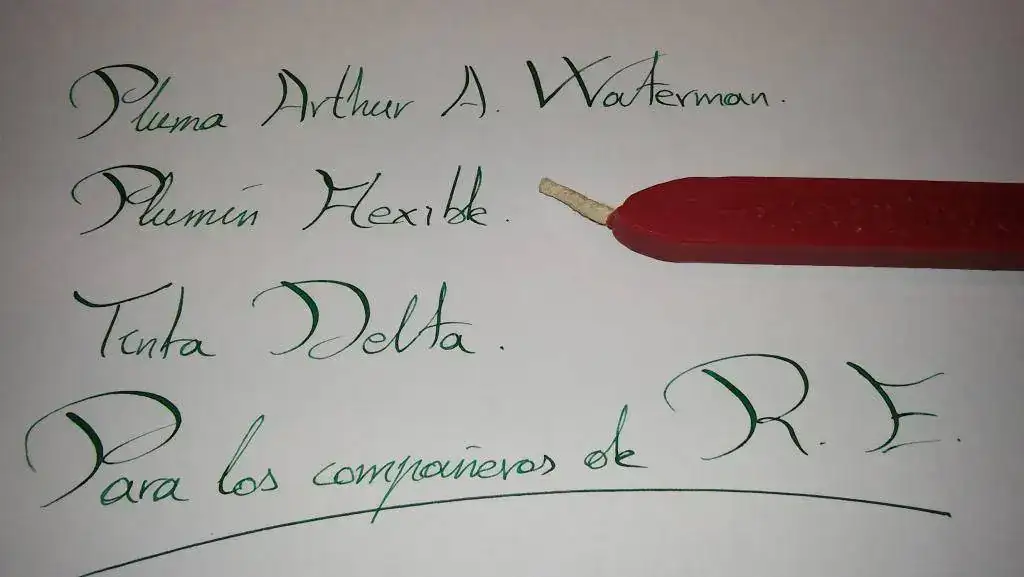 Pluma Arthur A. Waterman.
Plumin Flexible.
Tinta Delta.
Para los compañeros de R. E.